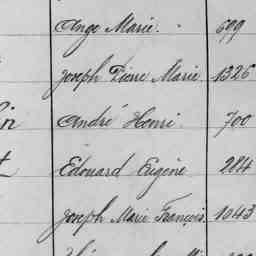 Ange Marie. 699
Joseph Pierre Marie 1326
André Henri. 700
Edouard Eugène 284
Joseph Marie François 1043